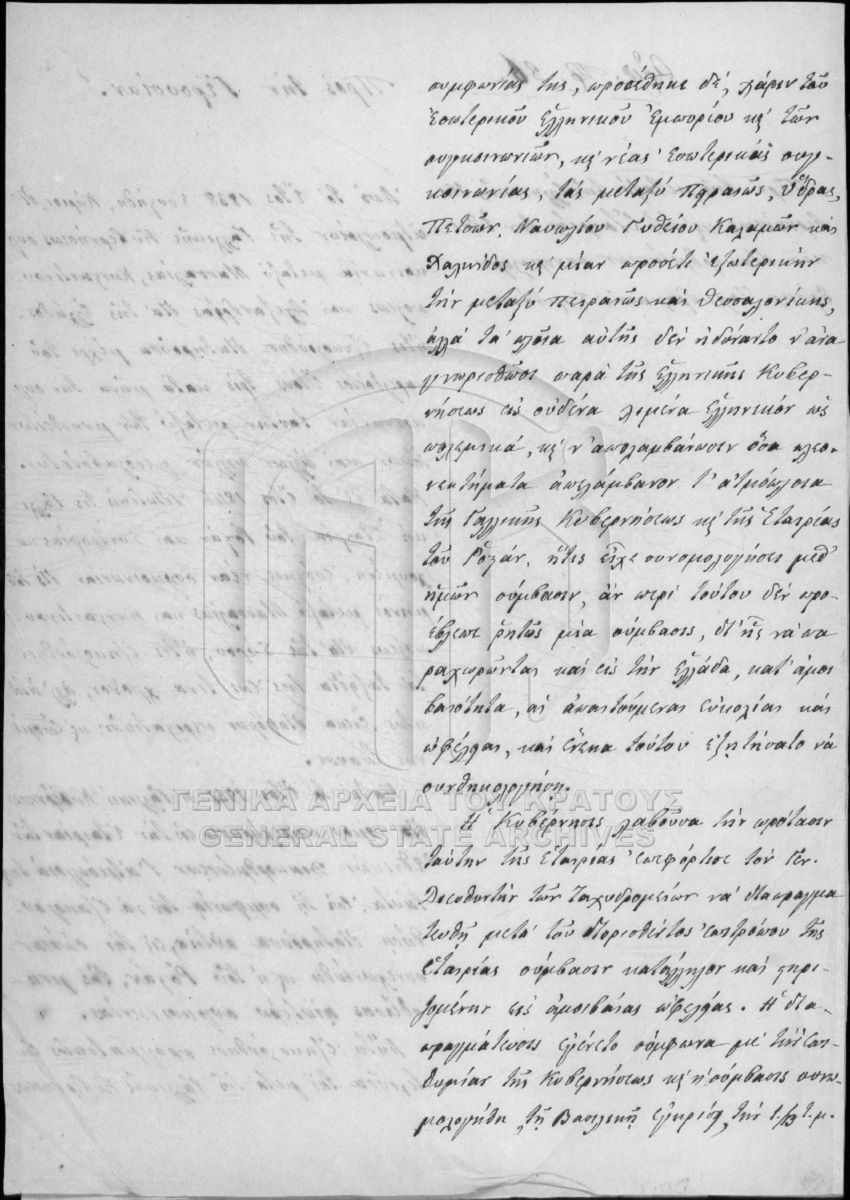 συμφωνίας της, προσέθηκε δέ, χάριν τοῦ
Ἐσωτερικοῦ Ἑλληνικοῦ Ἐμπορίου κ̣ τῶν
συγκοινωνιῶν, κ̣ νέας Ἐσωτερικάς συγ-
κοινωνίας, τάς μεταξύ Πειραιῶς, Ὕδρας,
Πετσῶν, Ναυπλίου Γυθείου Καλαμῶν καί
Χαλκίδος κ̣ μίαν προσέτι ἐξωτερικήν
τήν μεταξύ Πειραιῶς καί Θεσσαλονίκης,
ἀλλά τά πλοῖα αὐτῆς δέν ἠδύναντο ν' ἀνα
γνωρισθῶσι παρά τῆς Ἑλληνικῆς Κυβερ-
νήσεως εἰς οὐδένα λιμένα Ἑλληνικόν ὡς
πολεμικά, κ̣ ν' ἀπολαμβάνωσιν ὅσα πλεο-
νεκτήματα ἀπελάμβανον τ' ἀτμόπλοια
τῆς Γαλλικῆς Κυβερνήσεως κ̣ τῆς Ἑταιρίας
τοῦ Ροζάν, ἥτις εἶχε συνομολογήσει μεθ'
ἡμῶν σύμβασιν, ἄν περί τούτου δέν προ-
έβλεπε ῥητῶς μία σύμβασις, δι' ἧς νά πα
ραχωρῶνται καί εἰς τήν Ἑλλάδα, κατ' ἀμοι
βαιότητα, αἱ ἀπαιτούμεναι εὐκολίαι καί
ὠφέλειαι, καί ἕνεκα τούτου ἐζητήσατο νά
συνθηκολογήσῃ.
ΓΕΝΙΚΑ ΑΡΧΕΙΑ ΤΟΥ ΚΡΑΤΟΥΣ
GENERAL STATE ARCHIVES
Ἡ Κυβέρνησις λαβοῦσα τήν πρότασιν
ταύτην τῆς Ἑταιρίας ἐπεφόρτισε τόν Γεν.
Διευθυντήν τῶν Ταχυδρομείων νά διαπραγμα
τευθῇ μετά τοῦ διορισθέντος ἐπιτρόπου τῆς
Ἑταιρίας σύμβασιν κατάλληλον καί στηρι-
ζομένην εἰς ἀμοιβαίας ὠφελείας. Ἡ δια
πραγμάτευσις ἐγένετο σύμφωνα μέ τήν ἐπι-
θυμίαν τῆς Κυβερνήσεως κ̣ ἡ σύμβασις συνω-
μολογήθη τῇ Βασιλικῇ ἐγκρίσει, τήν 1/13 τ.μ.